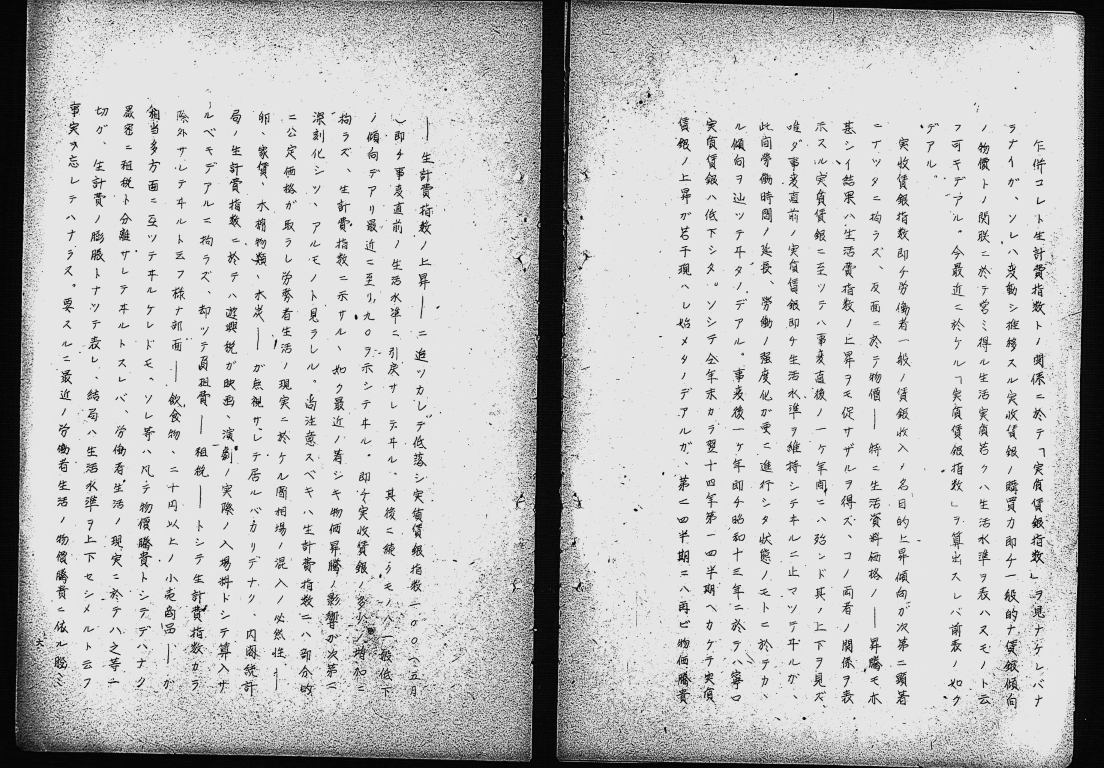 乍併コレト生計費指数トノ関係ニ於テ「実質賃銀指数」ヲ見ナケレバナ
ラナイガ、ソレハ変動シ推移スル実收賃銀ノ購買力即チ一般的ナ賃銀傾向
ノ物價トノ関联ニ於テ営ミ得ル生活実質若クハ生活水準ヲ表ハスモノト云
フ可キデアル。今最近ニ於ケル「実質賃銀指数」ヲ算出スレバ前表ノ如ク
デアル。
実收賃銀指数即チ労働者一般ノ賃銀收入ノ名目的上昇傾向ガ次第ニ顕著
ニナツタニ拘ラズ、反面ニ於テ物價――特ニ生活資料価格ノ――昇騰モ亦
甚シイ結果ハ生活費指数ノ上昇ヲモ促サザルヲ得ズ、コノ両者ノ関係ヲ表
示スル実質賃銀ニ至ツテハ事変直後ノ一ヶ年間ニハ殆ンド其ノ上下ヲ見ズ、
唯ダ事変直前ノ実質賃銀即チ生活水準ヲ維持シテヰルニ止マツテヰルガ、
此間労働時間ノ延長、労働ノ强度化ガ更ニ進行シタ状態ノモトニ於テカヽ
ル傾向ヲ辿ツテヰタノデアル。事変後一ヶ年即チ昭和十三年ニ於テハ寧ロ
実質賃銀ハ低下シタ。ソシテ仝年末カラ翌十四年第一四半期ヘカケテ実質
賃銀ノ上昇ガ若干現ヘレ始メタノデアルガ、第二四半期ニハ再ビ物価騰貴
――生計費指数ノ上昇――ニ追ツカレデ低落シ実質賃銀指数一〇〇(五月
)即チ事変直前ノ生活水準ニ引戻サレテヰル。其後ニ続クモノハ一般低下
ノ傾向デアリ最近ニ至リ九〇ヲ示シテヰル。即チ実收賃銀ノ多少ノ増加ニ
拘ラズ、生計費指数ニ示サルヽ如ク最近ノ著シキ物価昇騰ノ影響ガ次第ニ
深刻化シツヽアルモノト見ラレル。尚注意スベキハ生計費指数ニハ部分的
ニ公定価格ガ取ラレ労務者生活ノ現実ニ於ケル闇相場ノ混入ノ必然性――
卵、家賃、水物類、木炭――ガ無視サレテ居ルバカリデナク、内閣統計
局ノ生計費指数ニ於テハ遊興税ガ映画、演劇ノ実際ノ入場料トシテ算入サ
ルベキデアルニ拘ラズ、却ツテ負担費――租税――トシテ生計費指数カラ
除外サレテヰルト云フ様ナ部面――飲食物、二十円以上ノ小売商品――ガ
相当多方面ニ亙ツテヰルケレドモ、ソレ等ハ凡テ物價騰貴トシテデハナク
嚴密ニ租税ト分離サレテヰルトスレバ、労働者生活ノ現実ニ於テハ之等一
切ガ、生計費ノ膨脹トナツテ表レ、結局ハ生活水準ヲ上下セシメルト云フ
事実ヲ忘レテハナラヌ。要スルニ最近ノ労働者生活ノ物價騰貴ニ依ル脱ミ
六